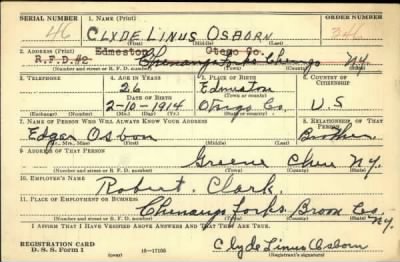 SERIAL NUMBER 1. NAME (Print) ORDER NUMBER
46 CLYDE LINUS OSBORN 34
(First) (Middle) (Last)
2. ADDRESS (Print) Edmeston Otego Co.
R.F.D. #2 Chenango Forks Chemgo NY.
(Number and street or R. F. D. number) (Town) (County) (State)
3. TELEPHONE 4. AGE IN YEARS 5. PLACE OF BIRTH 6. COUNTRY OF CITIZENSHIP
26 Edmiston
DATE OF BIRTH (Town or county)
2-10-1914 Otsego Co. U.S
(Exchange) (Number) (Mo.) (Day) (Yr.) (State or country)
7. NAME OF PERSON WHO WILL ALWAYS KNOW YOUR ADDRESS 8. RELATIONSHIP OF THAT PERSON
Edgar Osborn Brother
(Mr., Mrs., Miss) (First) (Middle) (Last)
9. ADDRESS OF THAT PERSON
Greene Chen NY.
(Number and street or R. F. D. number) (Town) (County) (State)
10. EMPLOYER'S NAME
Robert Clark.
11. PLACE OF EMPLOYMENT OR BUSINESS
Chenango Forks Broom Co. NY.
(Number and street or R. F. D. number) (Town) (County) (State)
I AFFIRM THAT I HAVE VERIFIED ABOVE ANSWERS AND THAT THEY ARE TRUE.
REGISTRATION CARD
D. S. S. Form 1 16-17105 Clyde Linus Osborn
(Registrant's signature)